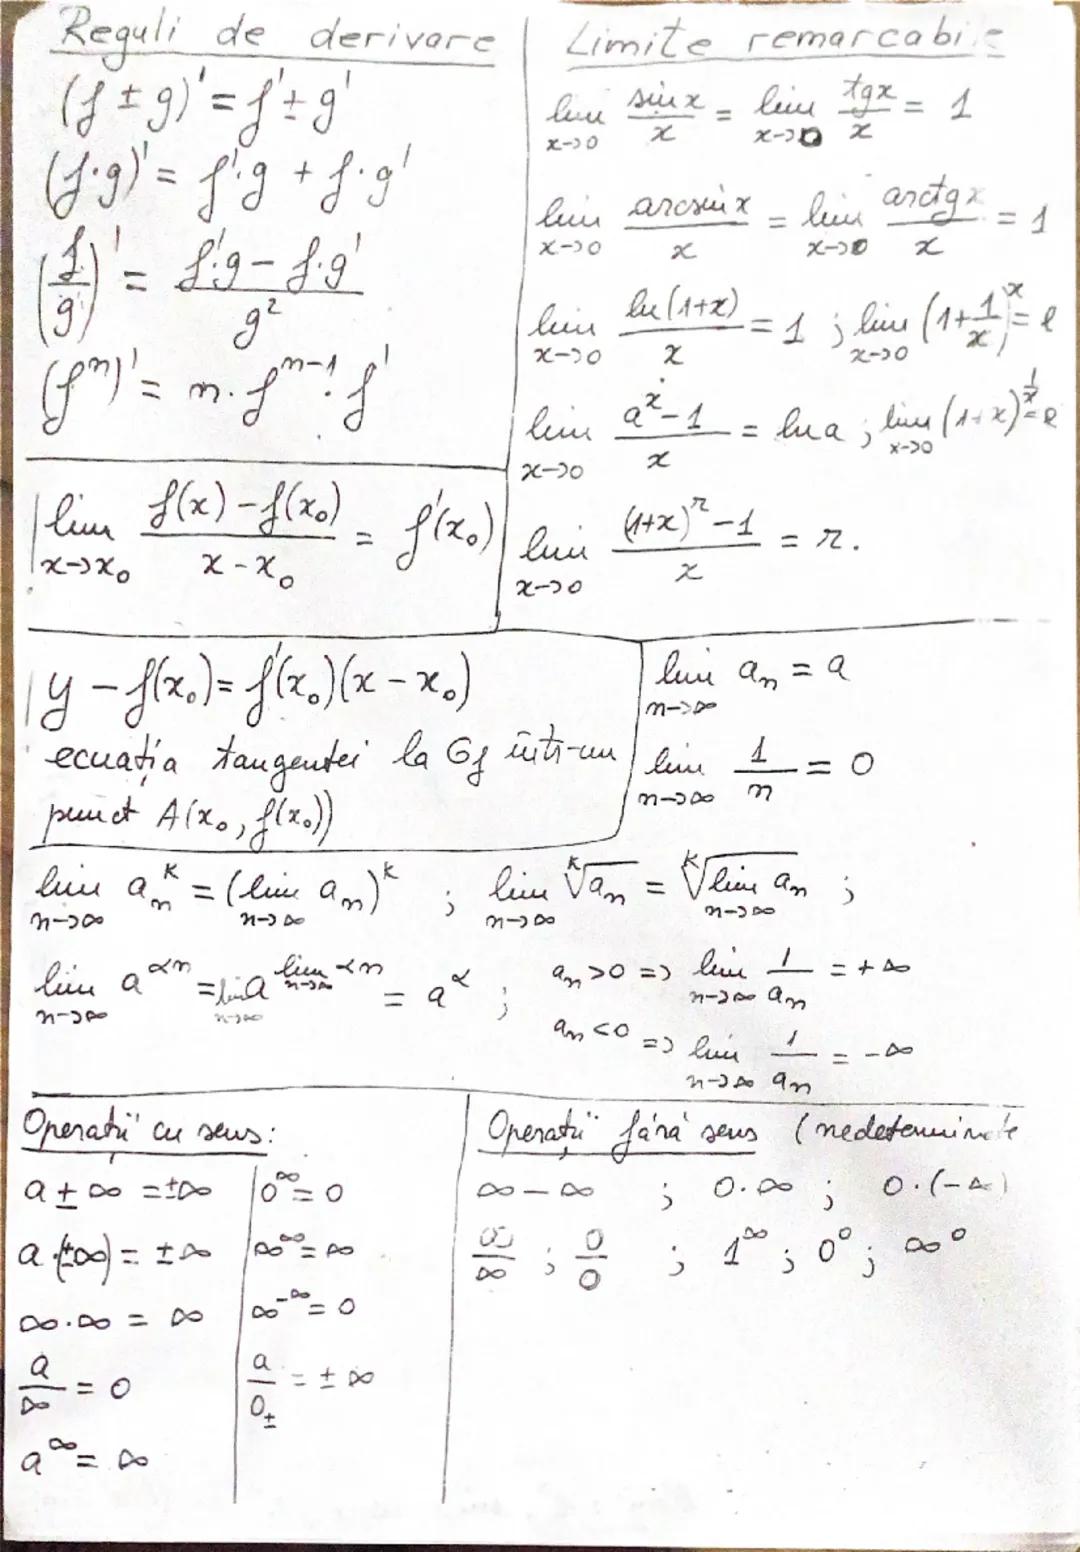 Reguli de derivare
(f ± g)' = f' ± g'
(f·g)' = f'·g + f·g'
(f/g)' = (f'·g − f·g')/g²
(fⁿ)' = n·fⁿ⁻¹·f'
lim x→x₀ (f(x) − f(x₀))/(x − x₀) = f'(x₀)
Limite remarcabile
lim x→0 sin x/x = lim x→0 tgx/x = 1
lim x→0 arcsin x/x = lim x→0 arctgx/x = 1
lim x→0 ln(1+x)/x = 1 ; lim x→0 (1+1/x)^x = e
lim x→0 (a^x − 1)/x = ln a ; lim x→0 (1+x)^(1/x) = e
lim x→0 ((1+x)^r − 1)/x = r.
y − f(x₀) = f'(x₀)(x − x₀)
ecuația tangentei la Gf într-un
punct A(x₀, f(x₀))
lim n→∞ aₙ = a
lim n→∞ 1/n = 0
lim n→∞ aₙ^k = (lim n→∞ aₙ)^k ; lim n→∞ ᵏ√aₙ = ᵏ√(lim n→∞ aₙ) ;
lim n→∞ a^(αn) = lim n→∞ a^(lim n→∞ αn) = a^α ;
aₙ > 0 => lim n→∞ 1/aₙ = +∞
aₙ < 0 => lim n→∞ 1/aₙ = −∞
Operații cu sens:
a ± ∞ = ±∞
a·(±∞) = ±∞
∞·∞ = ∞
a/∞ = 0
a^∞ = ∞
0^∞ = 0
∞^∞ = ∞
∞^−∞ = 0
a/0± = ±∞
Operații fără sens (nedeterminate
∞ − ∞ ; 0·∞ ; 0·(−∞)
∞/∞ ; 0/0 ; 1^∞ ; 0⁰ ; ∞⁰